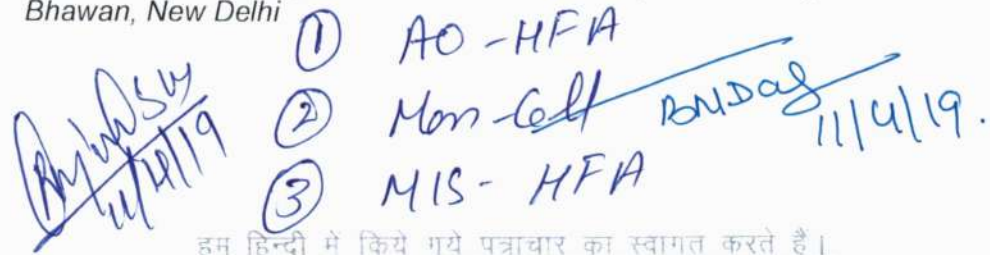 Bhawan, New Delhi
① AO-HFA
② Mon-Cell BNDas
11/4/19.
③ MIS-HFA
11/4/19
हम हिन्दी में किये गये पत्राचार का स्वागत करते हैं।